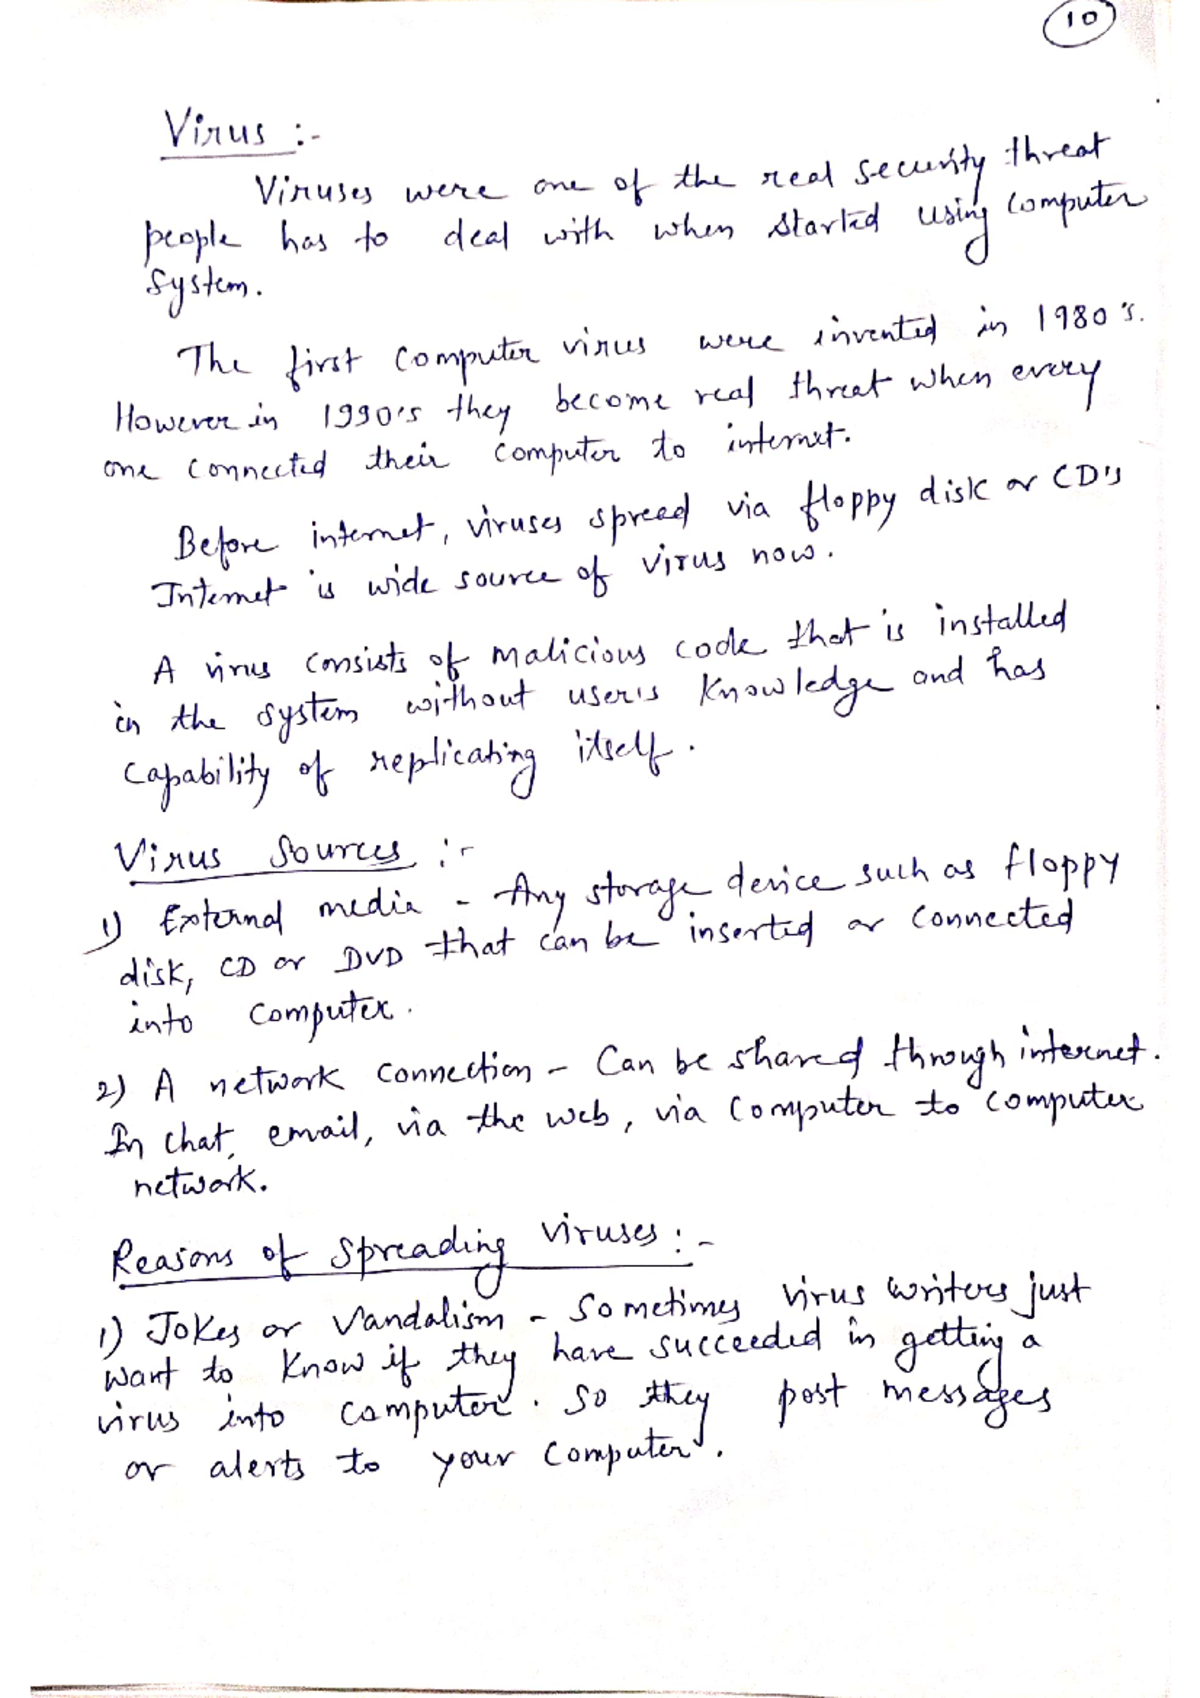 10
Virus :-
Viruses were one of the real security threat
people has to deal with when started using computer
system.
The first computer virus were invented in 1980's.
However in 1990's they become real threat when every
one connected their computer to internet.
Before internet, viruses spread via floppy disk or CD's
Internet is wide source of virus now.
A virus consists of malicious code that is installed
in the system without user's knowledge and has
capability of replicating itself.
Virus Sources :-
1) External media - Any storage device such as floppy
disk, CD or DVD that can be inserted or connected
into computer.
2) A network connection - Can be shared through internet.
In chat, email, via the web, via computer to computer
network.
Reasons of spreading viruses :-
1) Jokes or Vandalism - Sometimes virus writers just
want to know if they have succeeded in getting a
virus into computer. So they post messages
or alerts to your computer.